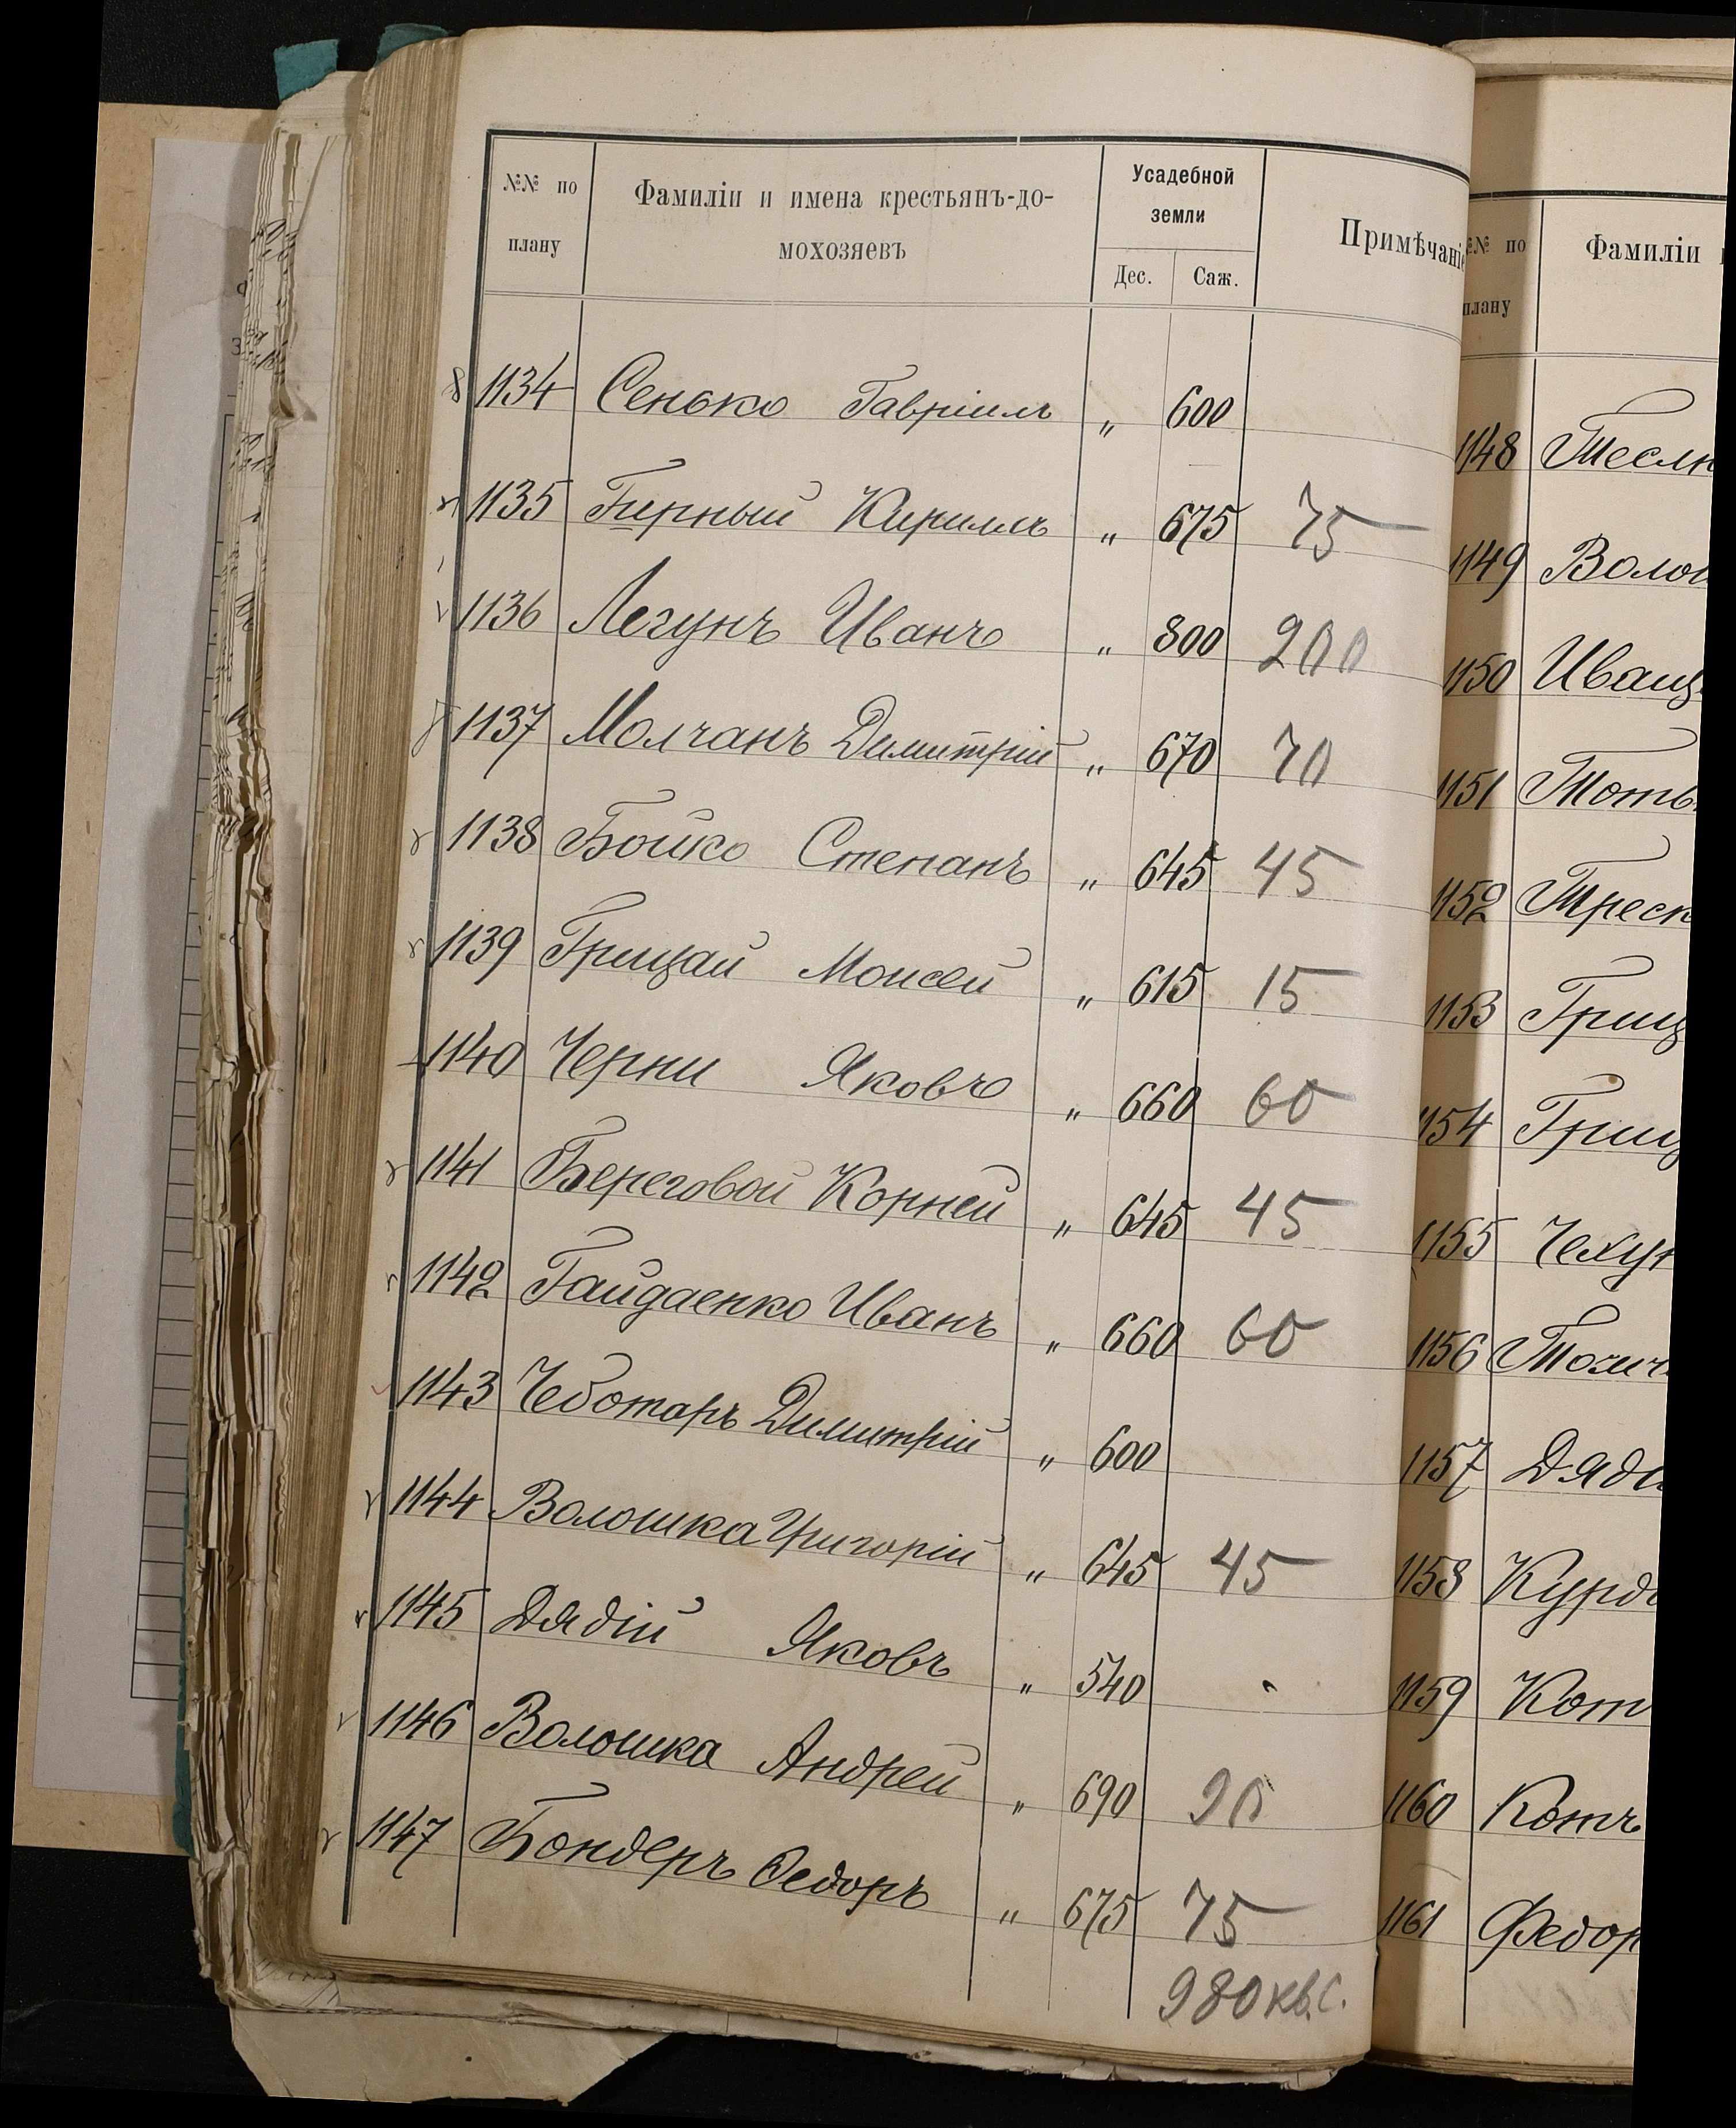 №№ по плану
Фамиліи и имена крестьянъ-до-
мохозяевъ
Усадебной
земли
Дес. Саж.
Примѣчаніе
1134 Сенько Гавріилъ " 600
1135 Гирный Кириллъ " 675 75
1136 Легунъ Иванъ " 800 200
1137 Молчанъ Димитрій " 670 70
1138 Бойко Степанъ " 645 45
1139 Грицай Моисей " 615 15
1140 Черни Яковъ " 660 60
1141 Береговой Корней " 645 45
1142 Гайдаенко Иванъ " 660 60
1143 Чеботарь Димитрій " 600
1144 Волошка Григорій " 645 45
1145 Дядій Яковъ " 540
1146 Волошка Андрей " 690 90
1147 Бондеръ Ѳедоръ " 675 75
980 кв. с.
№№ по
плану
Фамиліи
1148
1149
1150
1151
1152
1153
1154
1155
1156
1157
1158
1159
1160 Котъ
1161